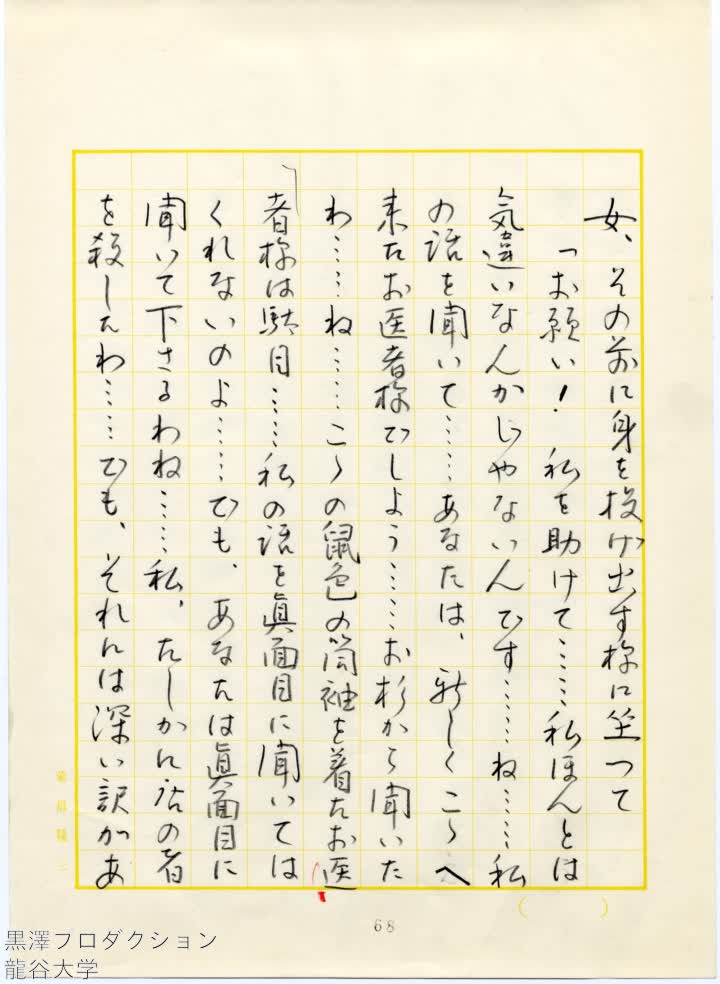 女、その前に身を投げ出す様に坐つて
「お願い！　私を助けて……私ほんとは
気違いなんかじゃないんです……ね……私
の話を聞いて……あなたは、新しくこゝへ
来たお医者様でしよう……お杉から聞いた
わ……ね……こゝの鼠色の筒袖を着たお医
者様は駄目……私の話を眞面目に聞いては
くれないのよ……でも、あなたは眞面目に
聞いて下さるわね……私、たしかに店の者
を殺したわ……でも、それには深い訳があ
68
黒澤プロダクション
龍谷大学